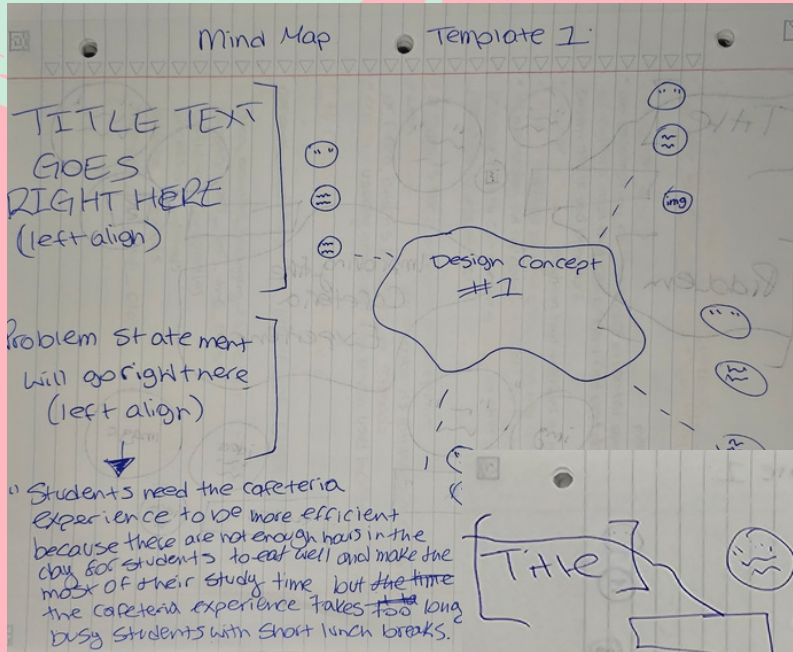 Mind Map Template 1:
TITLE TEXT
GOES
RIGHT HERE
(left align)
Problem statement
will go right here
(left align)
img
Design concept
#1
"Students need the cafeteria
experience to be more efficient
because there are not enough hours in the
day for students to eat well and make the
most of their study time but the time
the cafeteria experience takes too long
busy students with short lunch breaks.
Title